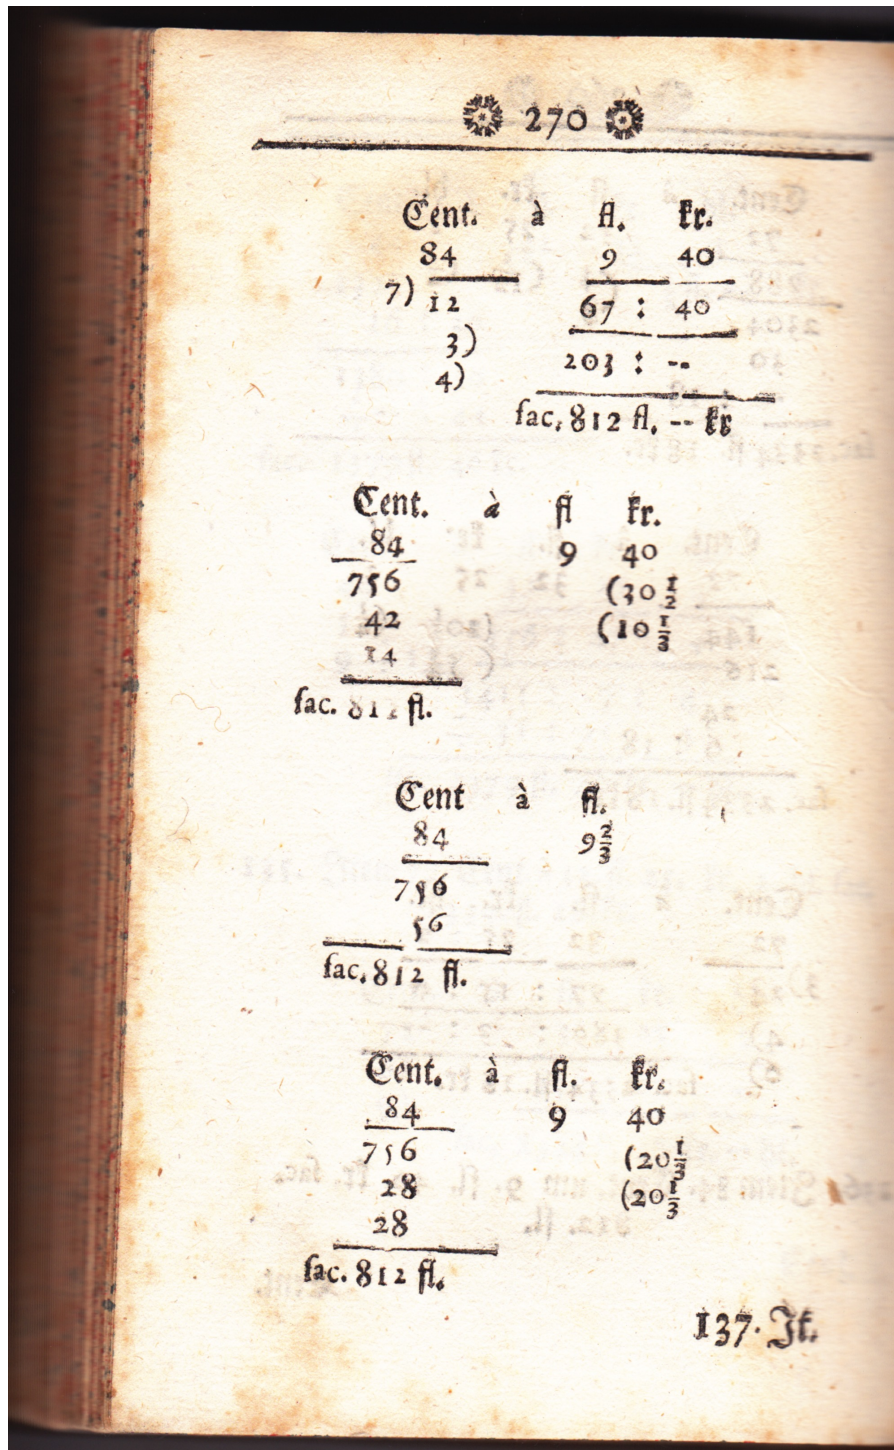 270
Cent. à fl. kr.
84 9 40
7) 12 67 : 40
3) 203 : --
4)
fac. 812 fl. -- kr
Cent. à fl kr.
84 9 40
756 (30 1/2
42 (10 1/3
14
fac. 812 fl.
Cent à fl.
84 9 2/3
756
56
fac. 812 fl.
Cent. à fl. kr.
84 9 40
756 (20 1/3
28 (20 1/3
28
fac. 812 fl.
137. It.